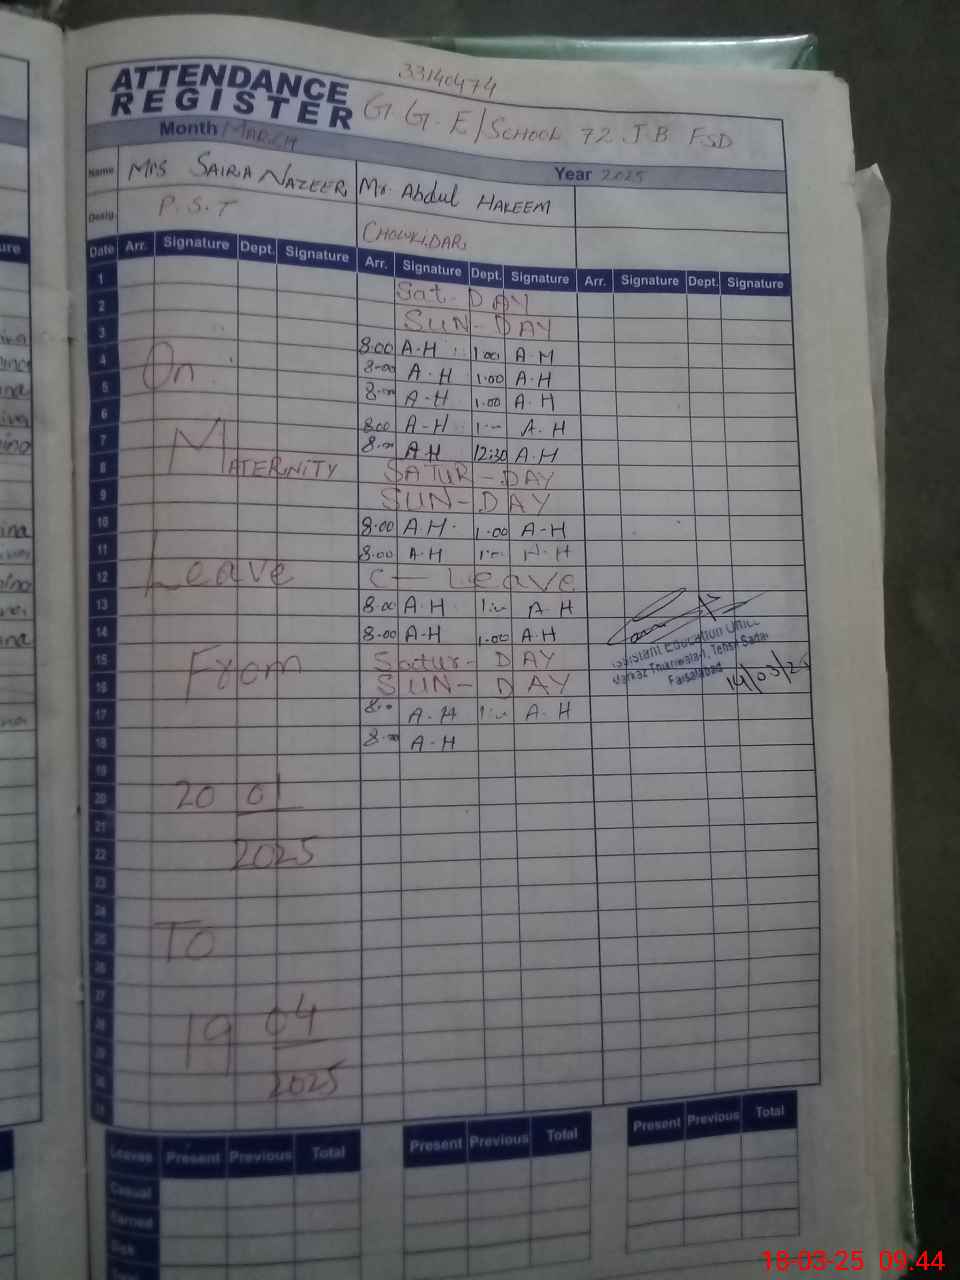 33140474
ATTENDANCE
REGISTER
G. G. E/SCHOOL 72 J.B FSD
Month MARCH
Year 2025
Name MRS SAIRA NAZEER Mr. Abdul HAKEEM
Desig. P.S.T CHOWKIDAR
Date Arr. Signature Dept. Signature Arr. Signature Dept. Signature Arr. Signature Dept. Signature
1 Sat-DAY
2 SUN-DAY
3 8.00 A.H 1.00 A.H
4 On 8.00 A.H 1.00 A.H
5 8.00 A-H 1.00 A.H
6 8.00 A-H 1.00 A.H
7 MATERNITY 8.00 AH 12:30 A.H
8 SATUR-DAY
9 SUN-DAY
10 8.00 A.H. 1.00 A-H
11 8.00 A.H 1.00 A.H
12 Leave C-Leave
13 8.00 A.H 1.00 A.H
14 8.00 A-H 1.00 A.H
15 From Satur-DAY
16 SUN-DAY
17 8.00 A.H 1.00 A.H
18 8.00 A-H
19
20 20 01
21
22 2025
23
24
25 TO
26
27
28 19 04
29
30 2025
31
Assistant Education Officer
Markaz Thikriwala-I, Tehsil Sadar
Faisalabad
14/03/25
Leaves Present Previous Total Present Previous Total Present Previous Total
Casual
Earned
Sick
18-03-25 09:44